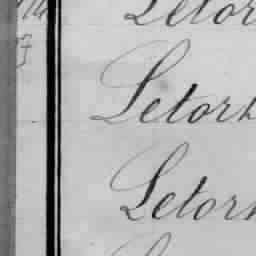 Letor
Letorh
Letorh